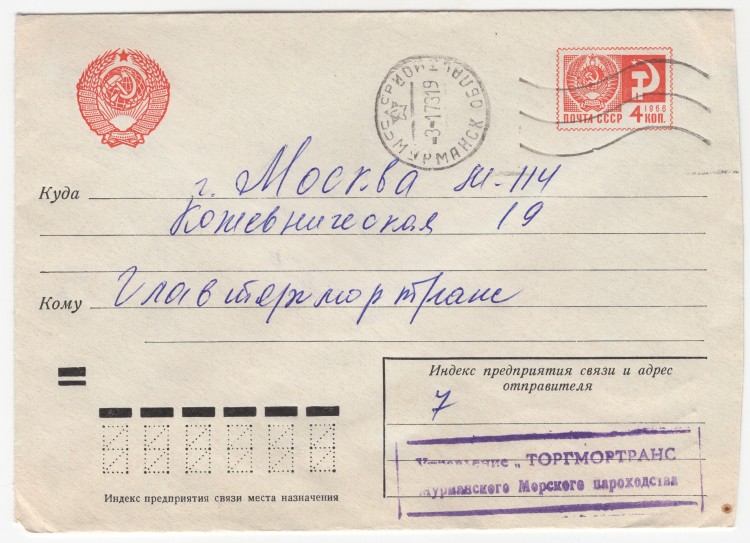 МУРМАНСК ОБЛПОЧТ
-3-1 7319
1966
ПОЧТА СССР 4 КОП.
Куда г. Москва М-114
Кожевническая 19
Кому Главторгмортранс
Индекс предприятия связи и адрес
отправителя
7
Управление „ ТОРГМОРТРАНС
Мурманского Морского пароходства
Индекс предприятия связи места назначения